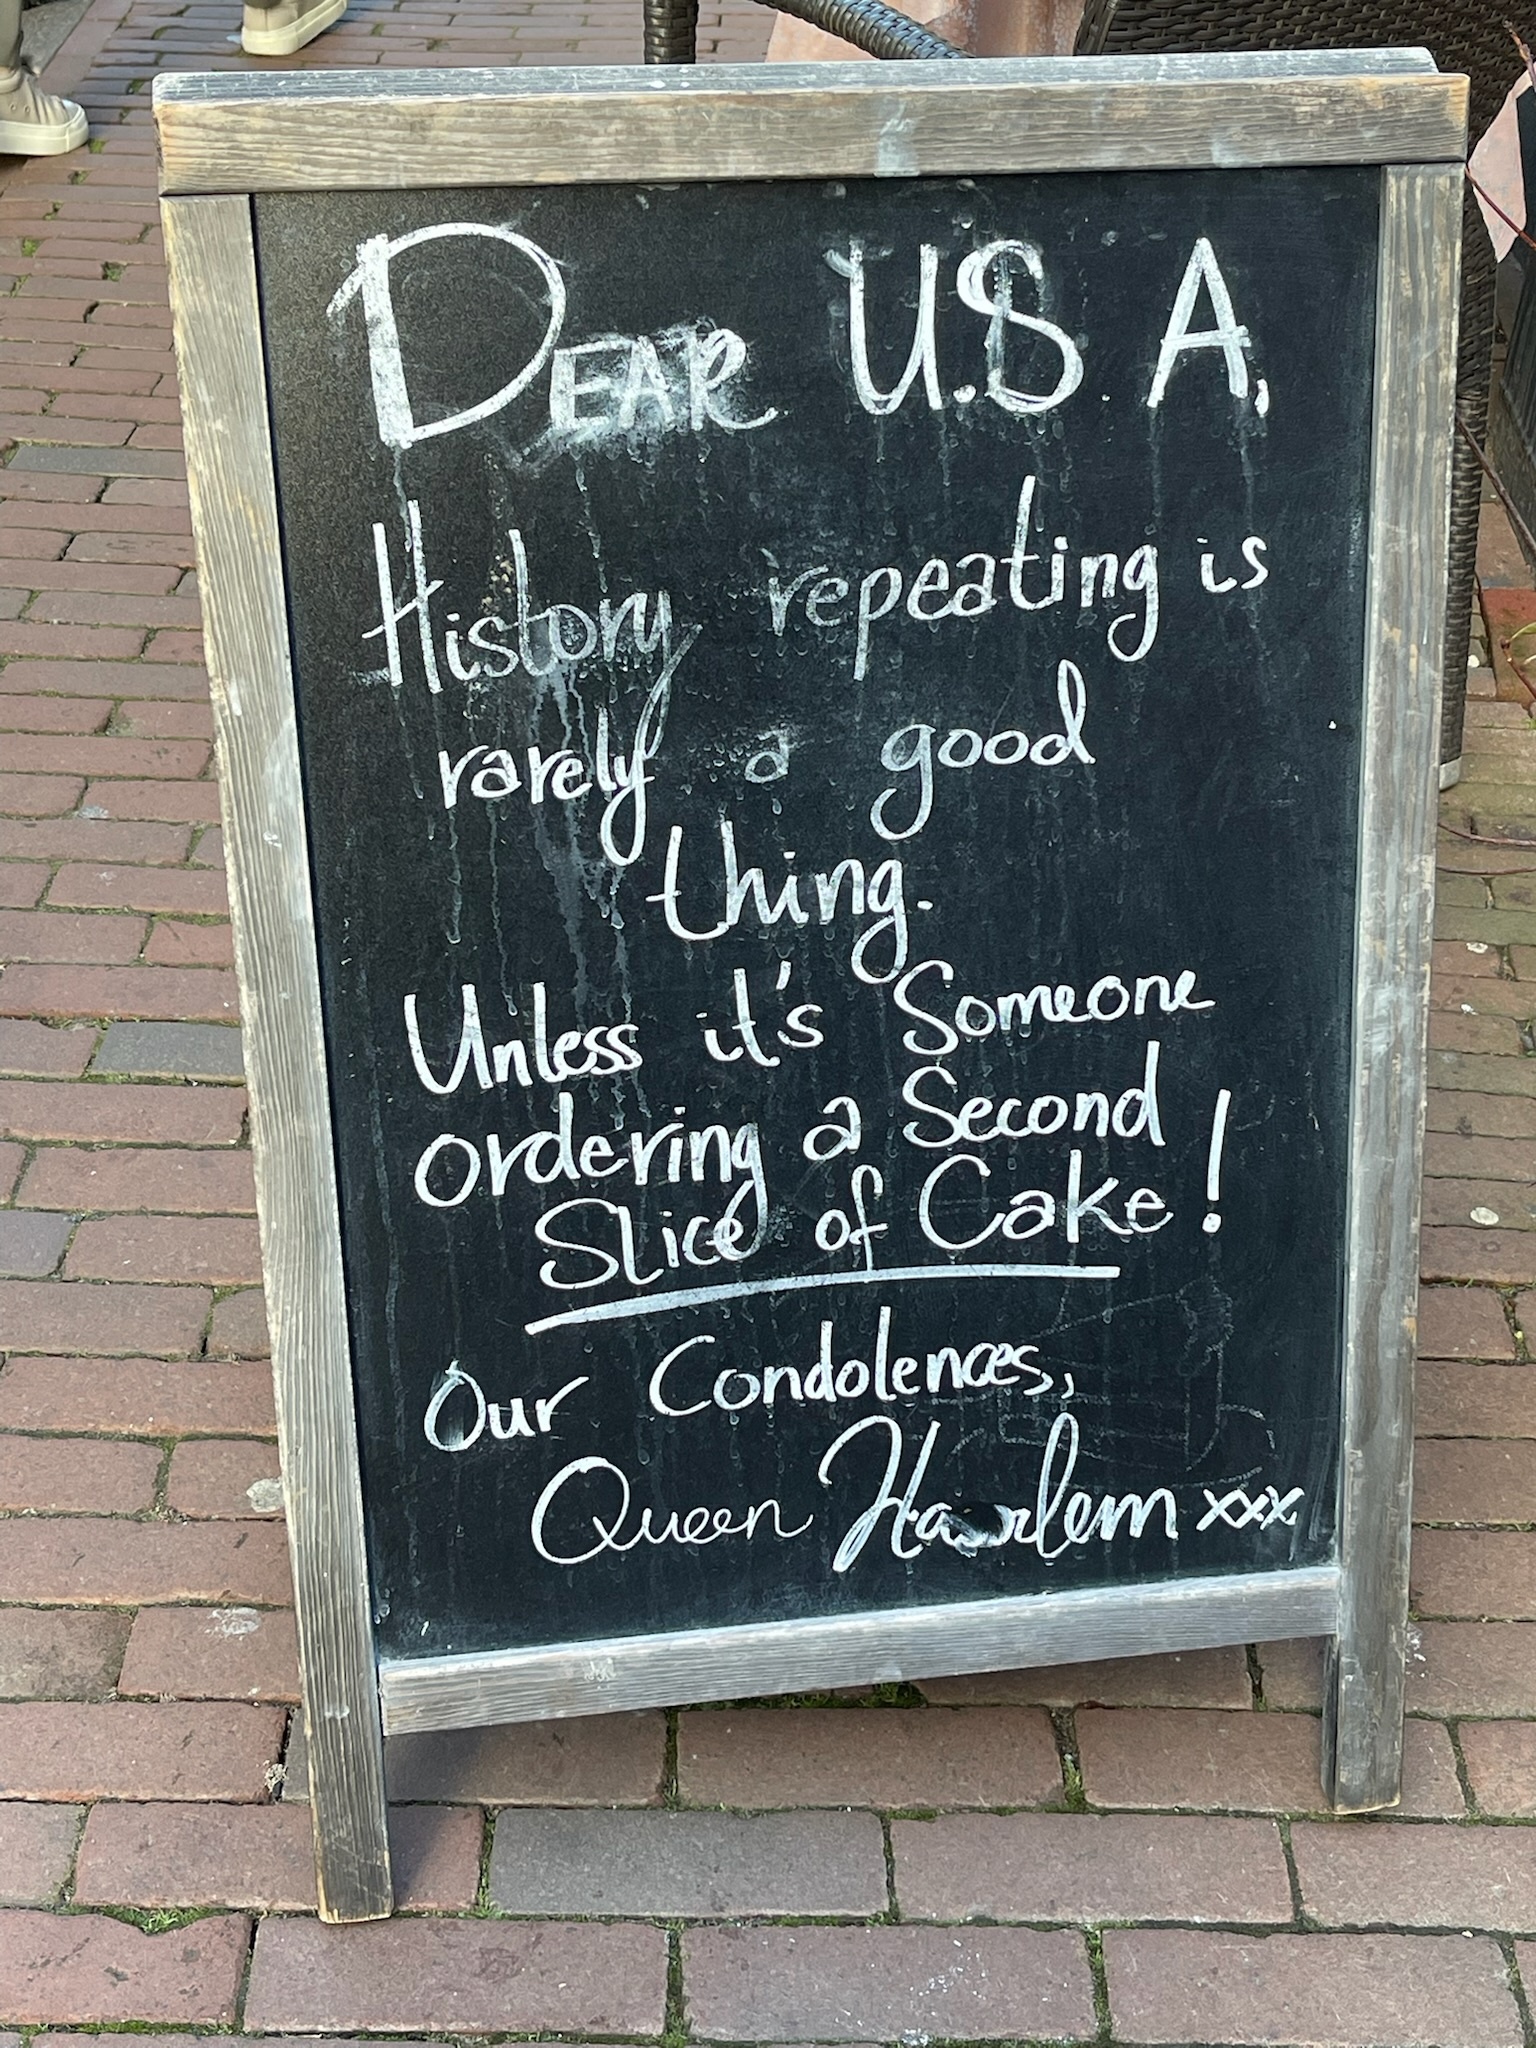 DEAR U.S.A,
History repeating is
rarely a good
thing.
Unless it's Someone
ordering a Second
Slice of Cake!
Our Condolences,
Queen Haarlem xxx